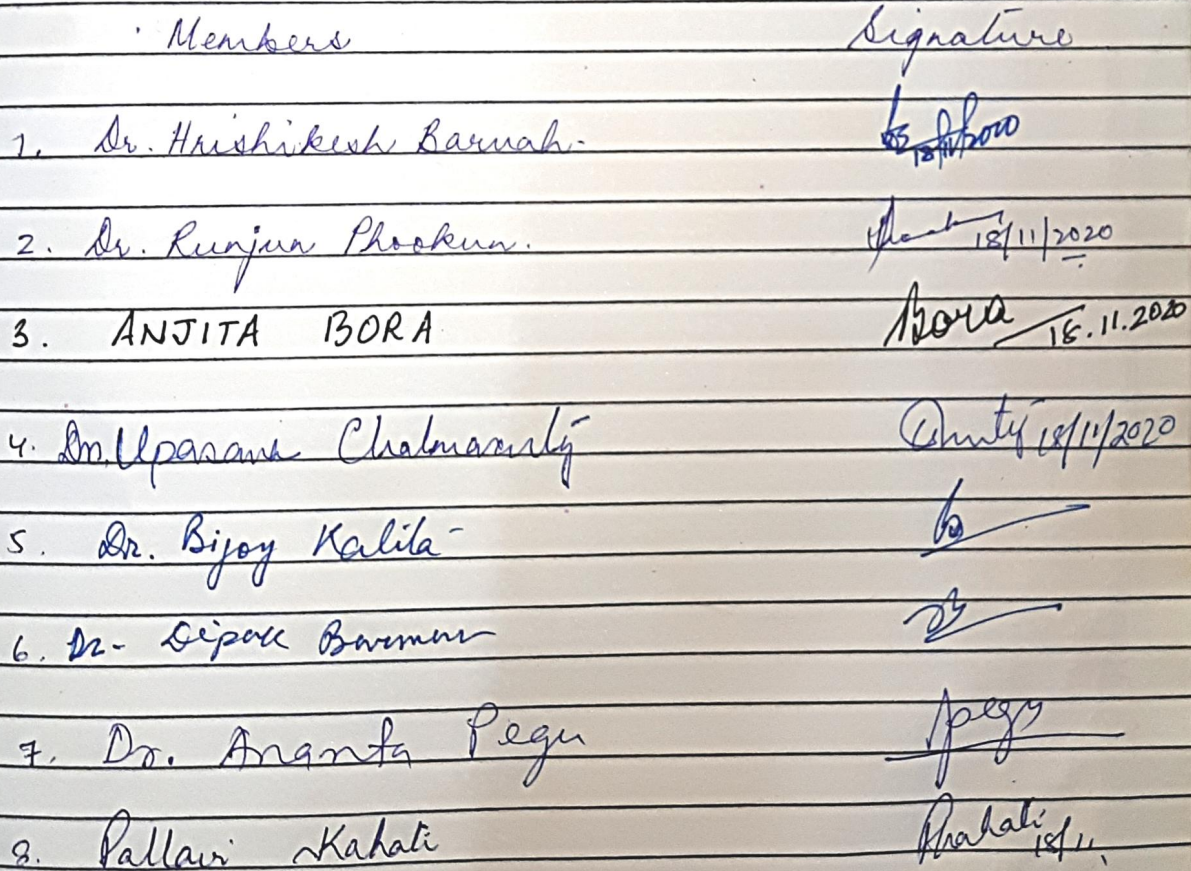 Members Signature
1. Dr. Hrishikesh Baruah. 18/11/2020
2. Dr. Runjun Phookun. 18/11/2020
3. ANJITA BORA Bora 18.11.2020
4. Dr. Upasana Chakravarty 18/11/2020
5. Dr. Bijoy Kalita
6. Dr- Dipak Barman
7. Dr. Ananta Pegu Apegu
8. Pallavi Kahati Pkahati 18/11